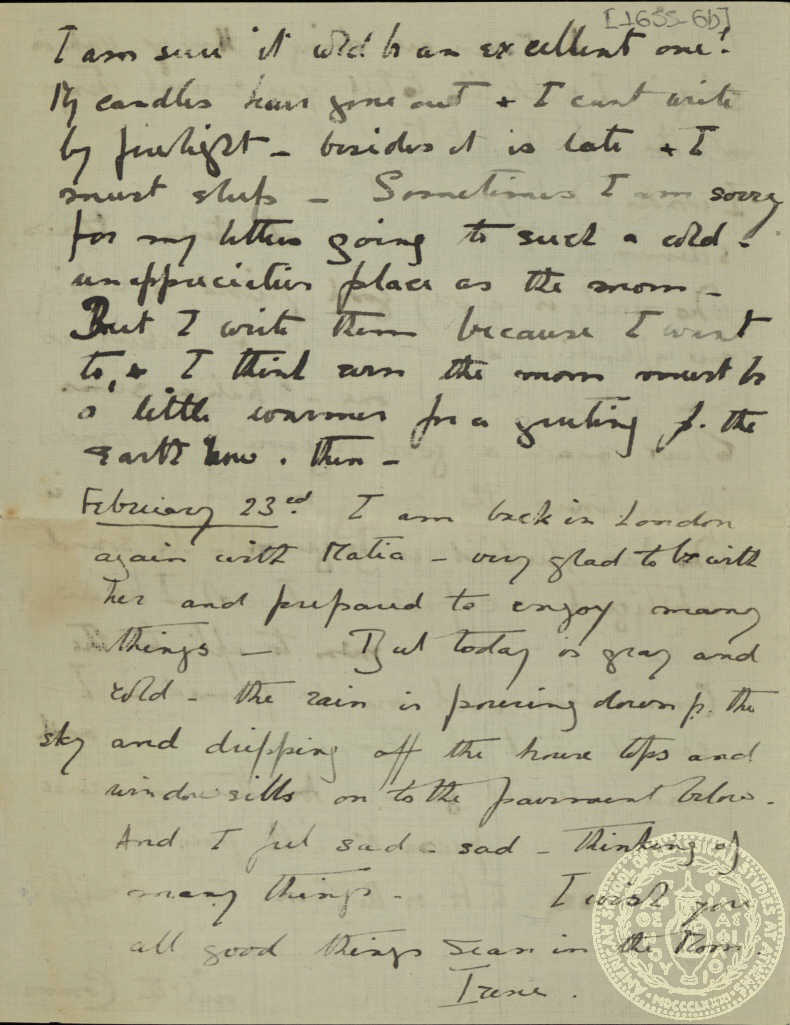 [1655-6b]
I am sure it wld be an excellent one!
My candles have gone out + I cant write
by firelight - besides it is late + I
must sleep - Sometimes I am sorry
for my letters going to such a cold -
unappreciative place as the moon -
But I write them because I want
to, + I think even the moon must be
a little warmer for a greeting f. the
earth now + then -
February 23rd I am back in London
again with Matia - very glad to be with
her and prepared to enjoy many
things - But today is gray and
cold - the rain is pouring down f. the
sky and dripping off the house tops and
window sills on to the pavement below.
And I feel sad - sad - thinking of
many things - I wish you
all good things Sean in the Moon.
Irene.
AMERICAN SCHOOL OF CLASSICAL STUDIES AT ATHENS
MDCCCLXXXI